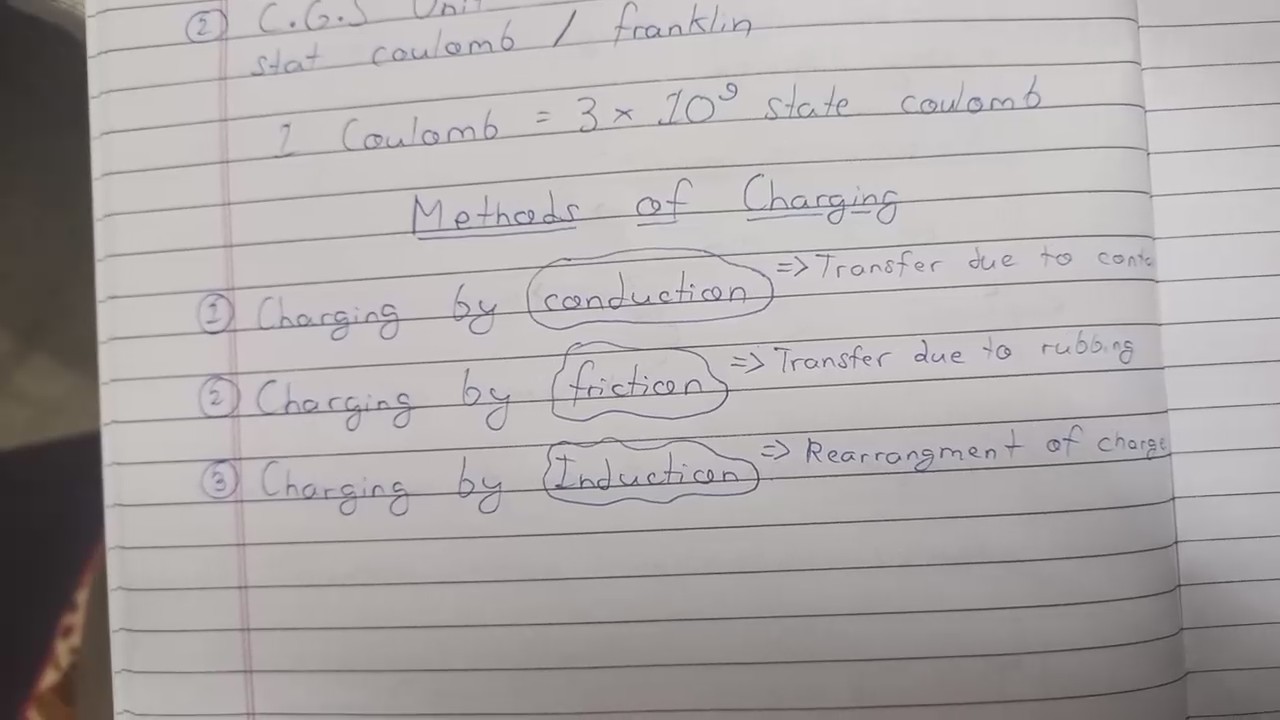 ② C.G.S Unit
stat coulomb / franklin
1 Coulomb = 3 × 10⁹ state coulomb
Methods of Charging
① Charging by conduction => Transfer due to
② Charging by friction => Transfer due to rubbing
③ Charging by Induction => Rearrangment of charge